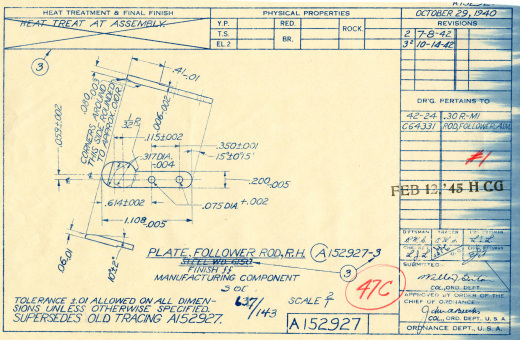 HEAT TREATMENT & FINAL FINISH
HEAT TREAT AT ASSEMBLY.
PHYSICAL PROPERTIES
Y.P.
RED.
ROCK.
T.S.
BR.
EL 2
OCTOBER 29, 1940
REVISIONS
2 7-8-42
3² 10-14-42
3
.41±.01
.080-.003
CORNERS AROUND
THIS SIDE ROUNDED
TO APPROX..001R
.006±.002
.059±.002
.115±.002
.350±.001
15°±0°15'
.317DIA.
+.004
.200-.005
.614±.002
.075 DIA +.002
1.108-.005
.06±.01
10°±2°
DR'G. PERTAINS TO
42-24 .30 R-M1
C64331
#1
FEB 12, '45 H CG
PLATE, FOLLOWER ROD, R.H. A152927-3
FINISH ff
3
MANUFACTURING COMPONENT
47C
TOLERANCE ±.01 ALLOWED ON ALL DIMEN-
SIONS UNLESS OTHERWISE SPECIFIED.
SUPERSEDES OLD TRACING A152927.
637/143
SCALE 2/1
A152927
SUBMITTED
COL., ORD. DEPT.
APPROVED BY ORDER OF THE
CHIEF OF ORDNANCE
COL., ORD. DEPT., U. S. A.
ORDNANCE DEPT., U. S. A.